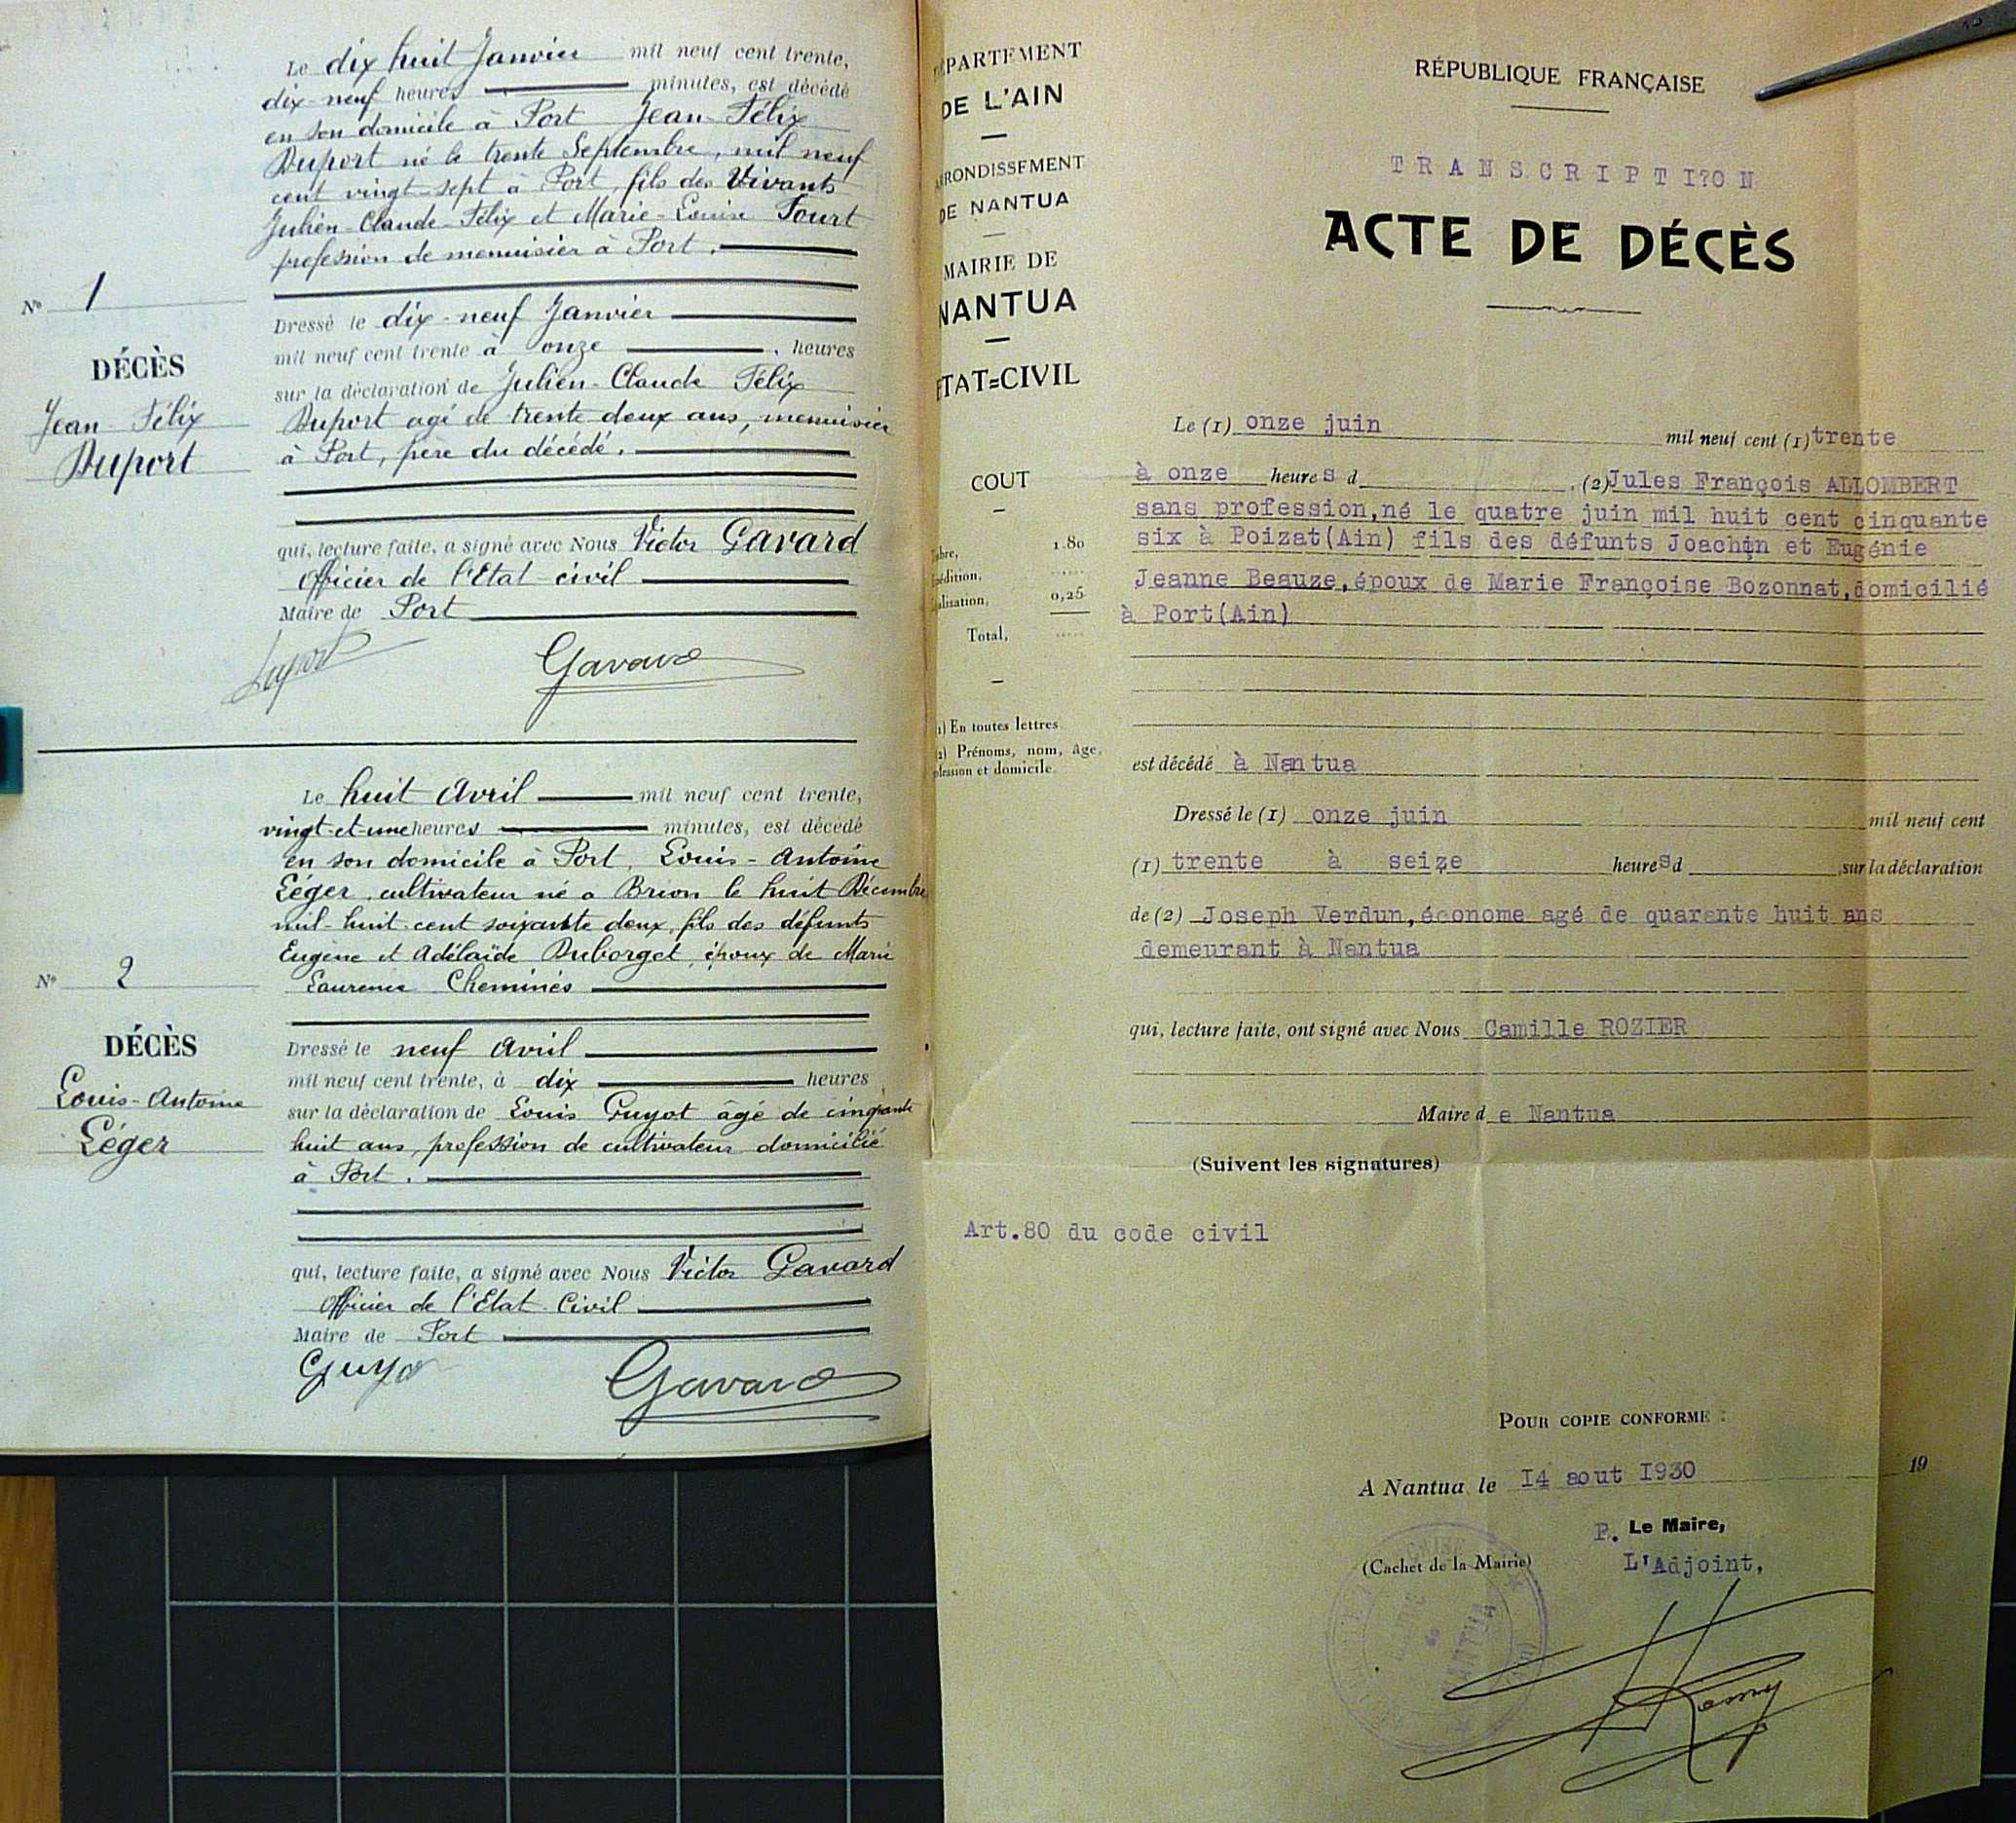 Le dix huit Janvier mil neuf cent trente,
dix-neuf heures minutes, est décédé
en son domicile à Port Jean-Félix
Duport né le trente Septembre, mil neuf
cent vingt-sept à Port, fils des Vivants
Julien-Claude-Félix et Marie-Louise Tourt
profession de menuisier à Port.
N° 1
DÉCÈS
Jean-Félix
Duport
Dressé le dix-neuf Janvier
mil neuf cent trente à onze heures
sur la déclaration de Julien-Claude Félix
Duport agé de trente deux ans, menuisier
à Port, père du décédé.
qui, lecture faite, a signé avec Nous Victor Gavard
Officier de l'Etat-civil
Maire de Port
Duport Gavard
Le huit Avril mil neuf cent trente,
vingt-et-une heures minutes, est décédé
en son domicile à Port, Louis-Antoine
Léger, cultivateur né a Brion le huit Décembre
mil-huit-cent soixante deux, fils des défunts
Eugène et Adélaïde Duborget, époux de Marie
Laurence Cheminés
N° 2
DÉCÈS
Louis-Antoine
Léger
Dressé le neuf Avril
mil neuf cent trente, à dix heures
sur la déclaration de Louis Guyot âgé de cinquante
huit ans, profession de cultivateur domicilié
à Port.
qui, lecture faite, a signé avec Nous Victor Gavard
Officier de l'Etat-Civil
Maire de Port
Guyot Gavard
PARTEMENT
DE L'AIN
RONDISSEMENT
DE NANTUA
MAIRIE DE
NANTUA
ETAT=CIVIL
COUT
1.80
édition, .....
alisation, 0,25
Total, .....
(1) En toutes lettres.
(2) Prénoms, nom, âge,
profession et domicile.
RÉPUBLIQUE FRANÇAISE
TRANSCRIPTI?ON
ACTE DE DÉCÈS
Le (1) onze juin mil neuf cent (1) trente
à onze heures d (2) Jules François ALLOMBERT
sans profession,né le quatre juin mil huit cent cinquante
six à Poizat(Ain) fils des défunts Joachin et Eugénie
Jeanne Beauze,époux de Marie Françoise Bozonnat,domicilié
à Port(Ain)
est décédé à Nantua
Dressé le (1) onze juin mil neuf cent
(1) trente à seize heures d sur la déclaration
de (2) Joseph Verdun,économe agé de quarante huit ans
demeurant à Nantua
qui, lecture faite, ont signé avec Nous Camille ROZIER
Maire d e Nantua
(Suivent les signatures)
Art.80 du code civil
POUR COPIE CONFORME :
A Nantua le 14 aout 1930 19
P. Le Maire,
(Cachet de la Mairie)
L'Adjoint,
NANTUA
(Ain)